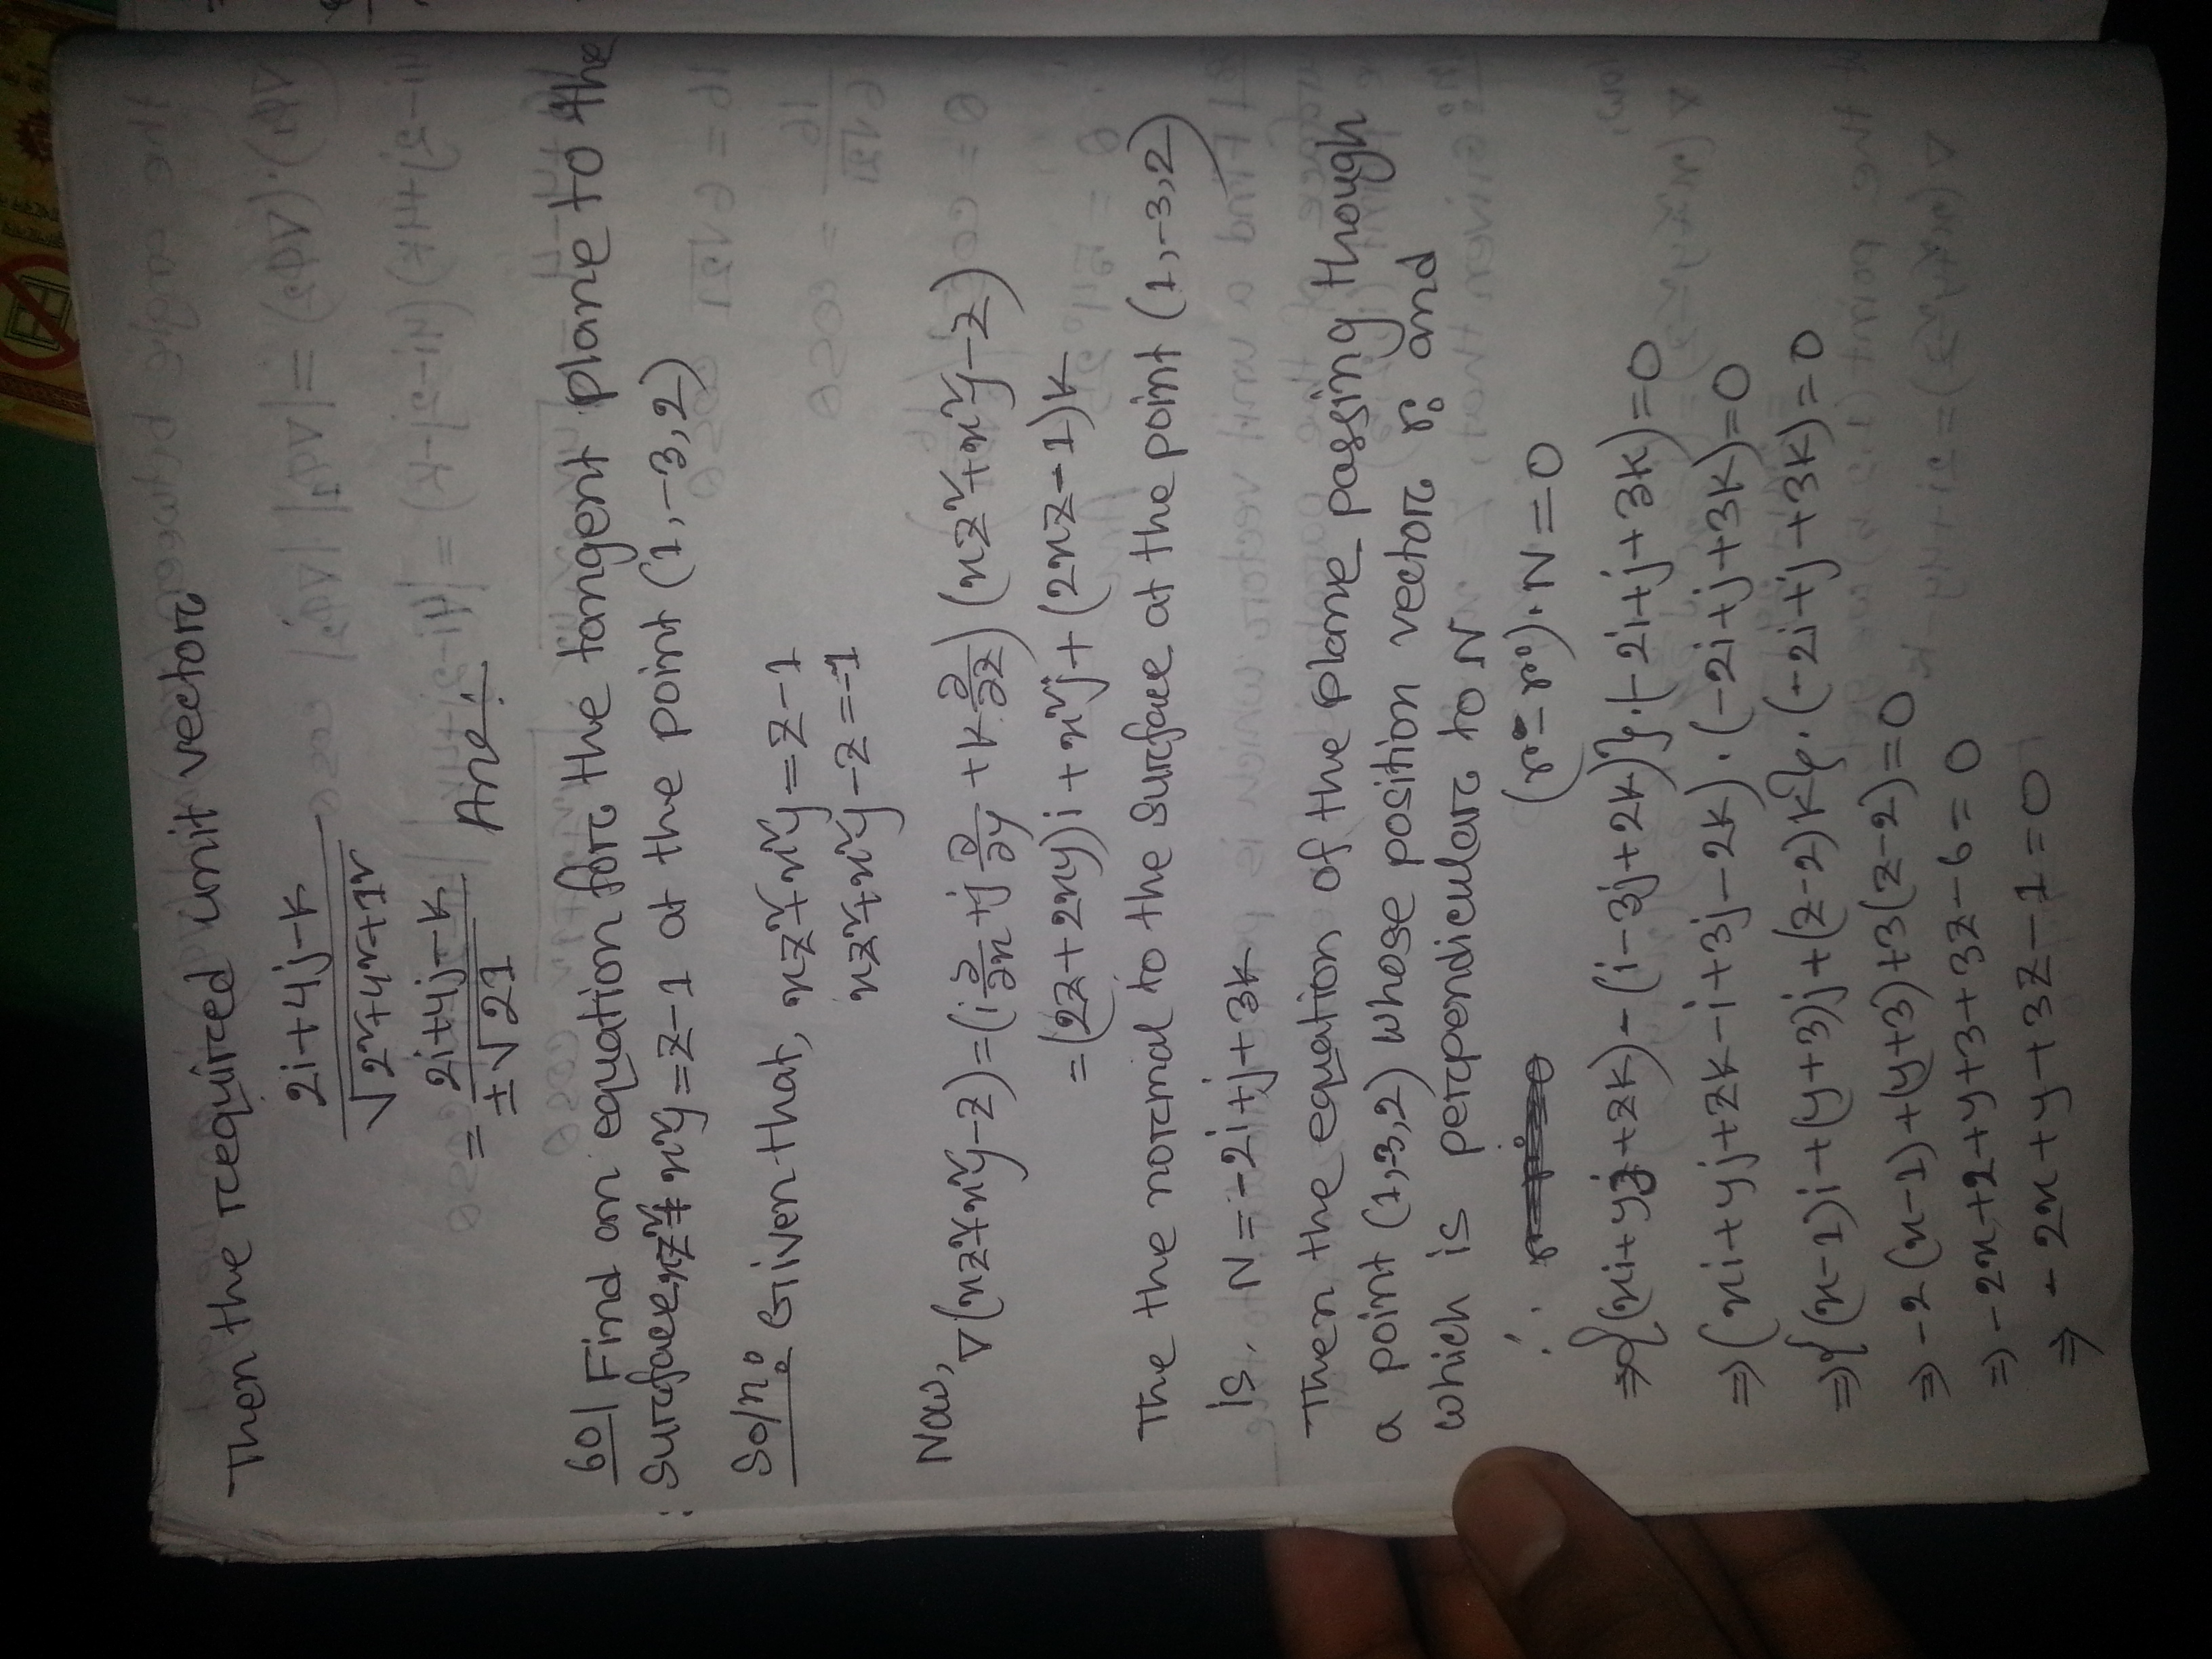 Then the required unit vector
2i+4j-k
√2²+4²+1²
= 2i+4j-k / ±√21 Ans:
60| Find an equation for the tangent plane to the
surface xz²+x²y=z-1 at the point (1,-3,2)
Soln: Given that, xz²+x²y=z-1
xz²+x²y-z=-1
Now,
∇(xz²+x²y-z)=(i ∂/∂x +j ∂/∂y +k ∂/∂z) (xz²+x²y-z)
=(2z+2xy)i+x²j+(2xz-1)k
The the normal to the surface at the point (1,-3,2)
is. N=-2i+j+3k
Then the equation of the plane passing though
a point (1,-3,2) whose position vector r₀ and
which is perpendicular to N
∴ (r-r₀).N=0
⇒{(xi+yj+zk)-(i-3j+2k)}.(-2i+j+3k)=0
⇒(xi+yj+zk-i+3j-2k).(-2i+j+3k)=0
⇒{(x-1)i+(y+3)j+(z-2)k}.(-2i+j+3k)=0
⇒-2(x-1)+(y+3)+3(z-2)=0
⇒-2x+2+y+3+3z-6=0
⇒-2x+y+3z-1=0